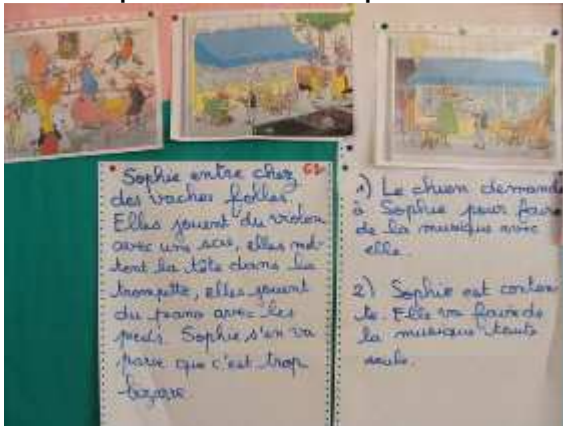 Sophie entre chez
des vaches folles.
Elles jouent du violon
avec une scie, elles met-
tent la tête dans la
trompette, elles jouent
du piano avec les
pieds. Sophie s'en va
parce que c'est trop
bizarre
1) Le chien demande
à Sophie pour faire
de la musique avec
elle.
2) Sophie est conten
te. Elle va faire de
la musique toute
seule.